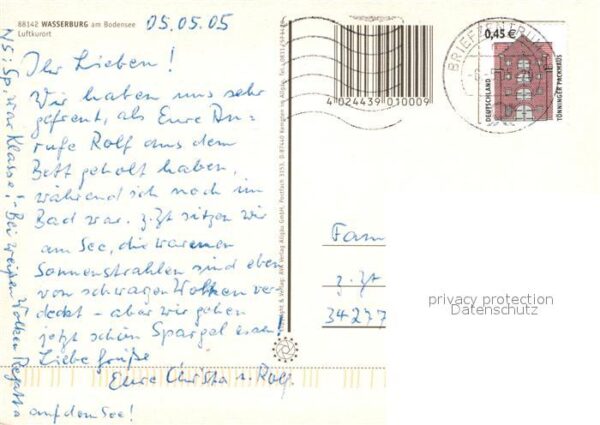 88142 WASSERBURG am Bodensee
Luftkurort
05.05.05
Ihr Lieben!
Wir haben uns sehr
gefreut, als Eure An-
rufe Rolf aus dem
Bett geholt haben,
während ich noch im
Bad war. z.Zt sitzen wir
am See, die warmen
Sonnenstrahlen sind eben
von schwarzen Wolken ver-
deckt - aber wir gehen
jetzt schön Spargel essen!
Liebe Grüße
Eure Christa u. Rolf.
NS: Sp. war Klasse! - Bei weißen Wolken Regatta
auf dem See!
4 024439 010009
BRIEFZENTRUM
0,45 €
DEUTSCHLAND
TÖNNINGER PACKHAUS
Fam
z.Zt
34277
privacy protection
Datenschutz